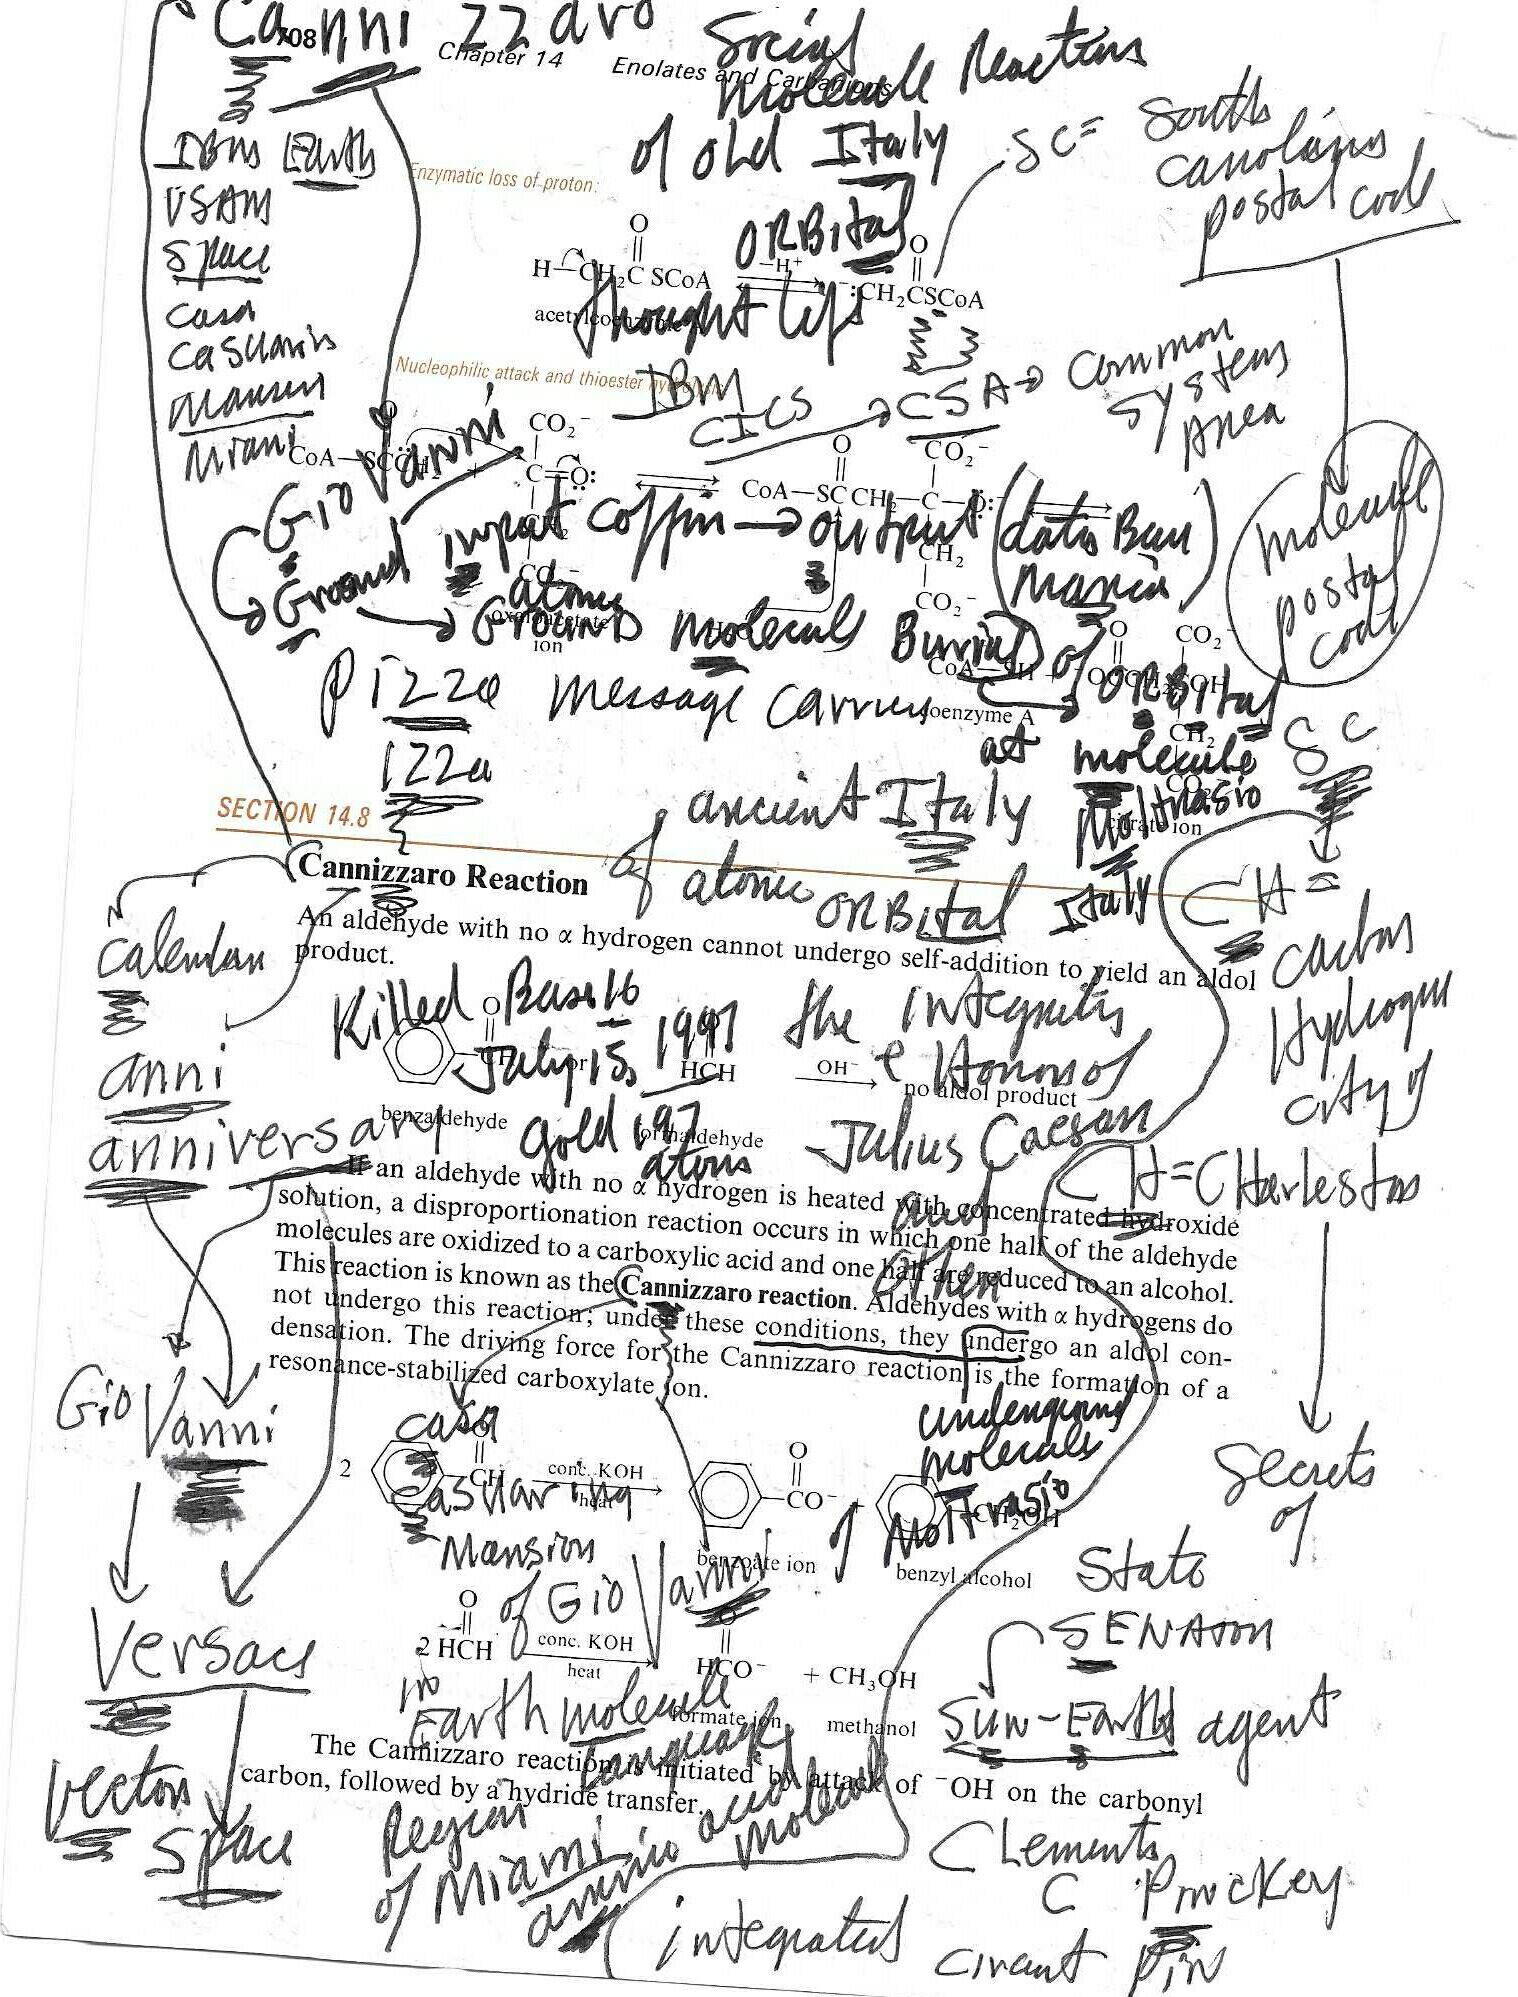 Cannizzaro
708
Chapter 14 Enolates and Carbanions
Social
molecule Reactions
of old Italy
SC = South
Carolinas
postal code
IBM Earth
VSAM
Space
Casa
Casuarina
Mansion
Miami
Enzymatic loss of proton:
ORBital
H—CH₂C SCoA
O
−H⁺
⁻:CH₂CSCoA
O
thought life
Nucleophilic attack and thioester
IBM
CICS → CSA → Common
System
Area
CO₂⁻
CO₂⁻
CoA—SCCH₂
+
C=O:
CoA—SCCH₂—C—O:⁻
Gio Vanni
Ground input coffin → output (data Bur
Maria)
CH₂
CO₂⁻
molecule
postal
code
atomic
→ Grounds molecule Burial of
ion
CoA—SH
CO₂⁻
Pizza message carrier
coenzyme A
ORBital
CH₂
izza
at molecule
SC
SECTION 14.8
ancient Italy
Moltrasio
citrate ion
Cannizzaro Reaction
of atomic ORBital
Italy
CH =
Carbon
Hydrogen
city of
An aldehyde with no α hydrogen cannot undergo self-addition to yield an aldol
product.
Calendar
Killed Base 16
July 15, 1997
the integrities
e Honors of
O
or
HCH
OH⁻
no aldol product
anni
benzaldehyde
gold 197
atoms
Julius Caesar
anniversary
CH = CHarleston
and
other
If an aldehyde with no α hydrogen is heated with concentrated hydroxide
solution, a disproportionation reaction occurs in which one half of the aldehyde
molecules are oxidized to a carboxylic acid and one half are reduced to an alcohol.
This reaction is known as the Cannizzaro reaction. Aldehydes with α hydrogens do
not undergo this reaction; under these conditions, they undergo an aldol con-
densation. The driving force for the Cannizzaro reaction is the formation of a
resonance-stabilized carboxylate ion.
Gio Vanni
casa
underground
molecule
Secrets
of
2
CH
O
conc. KOH
heat
CO⁻
O
+
CH₂OH
Casuarina
Mansion
of Moltrasio
State
SENATOR
benzoate ion
benzyl alcohol
of Gio Vanni
O
2 HCH
conc. KOH
heat
O
HCO⁻
+ CH₃OH
Versace
in
Earth molecule
Language
formate ion
methanol
Sun-Earth agent
The Cannizzaro reaction is initiated by attack of ⁻OH on the carbonyl
carbon, followed by a hydride transfer.
Vector
Space
Region
of Miami
amino acid
molecule
Clements
C Pinckney
integrated
circuit Pin